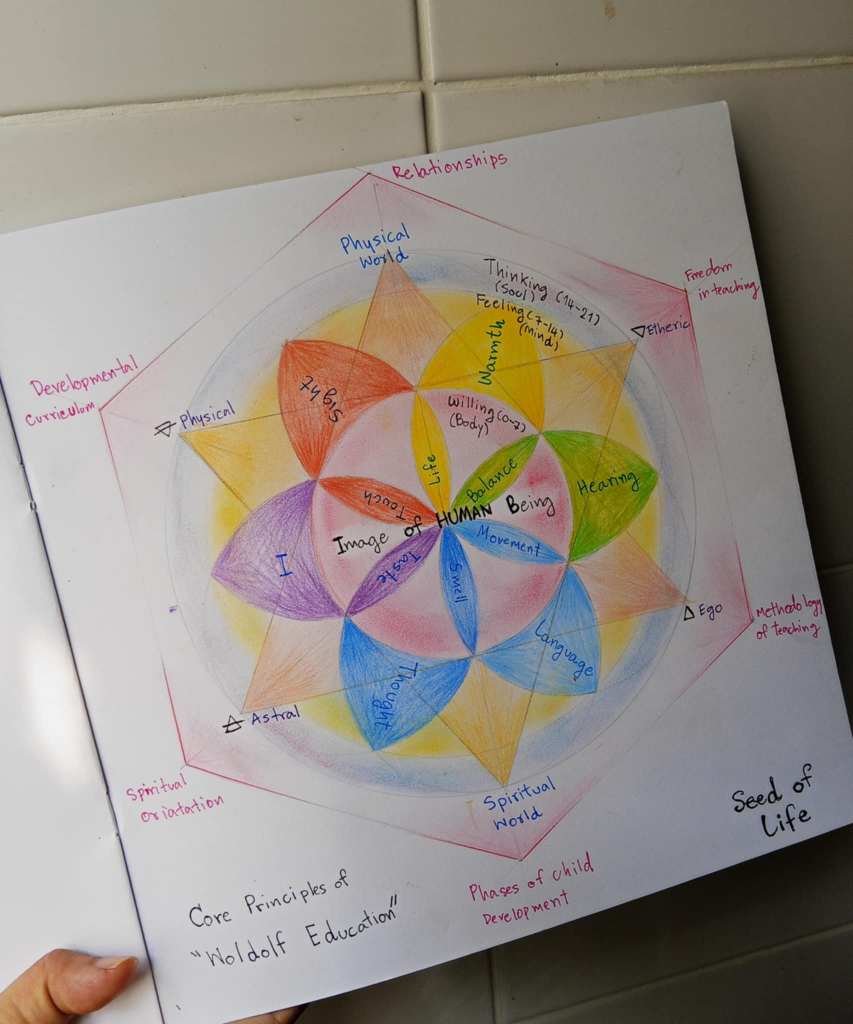 Relationships
Physical
World
Thinking (14-21)
(Soul)
Feeling (7-14)
(Mind)
Freedom
in teaching
Etheric
Developmental
Curriculum
Physical
Sight
Warmth
Willing (0-7)
(Body)
Life
Balance
Hearing
Touch
Image of HUMAN Being
I
Taste
Smell
Movement
Language
Thought
Ego
Methodology
of teaching
Astral
Spiritual
oriatation
Spiritual
World
Seed of
Life
Phases of child
Development
Core Principles of
"Woldolf Education"